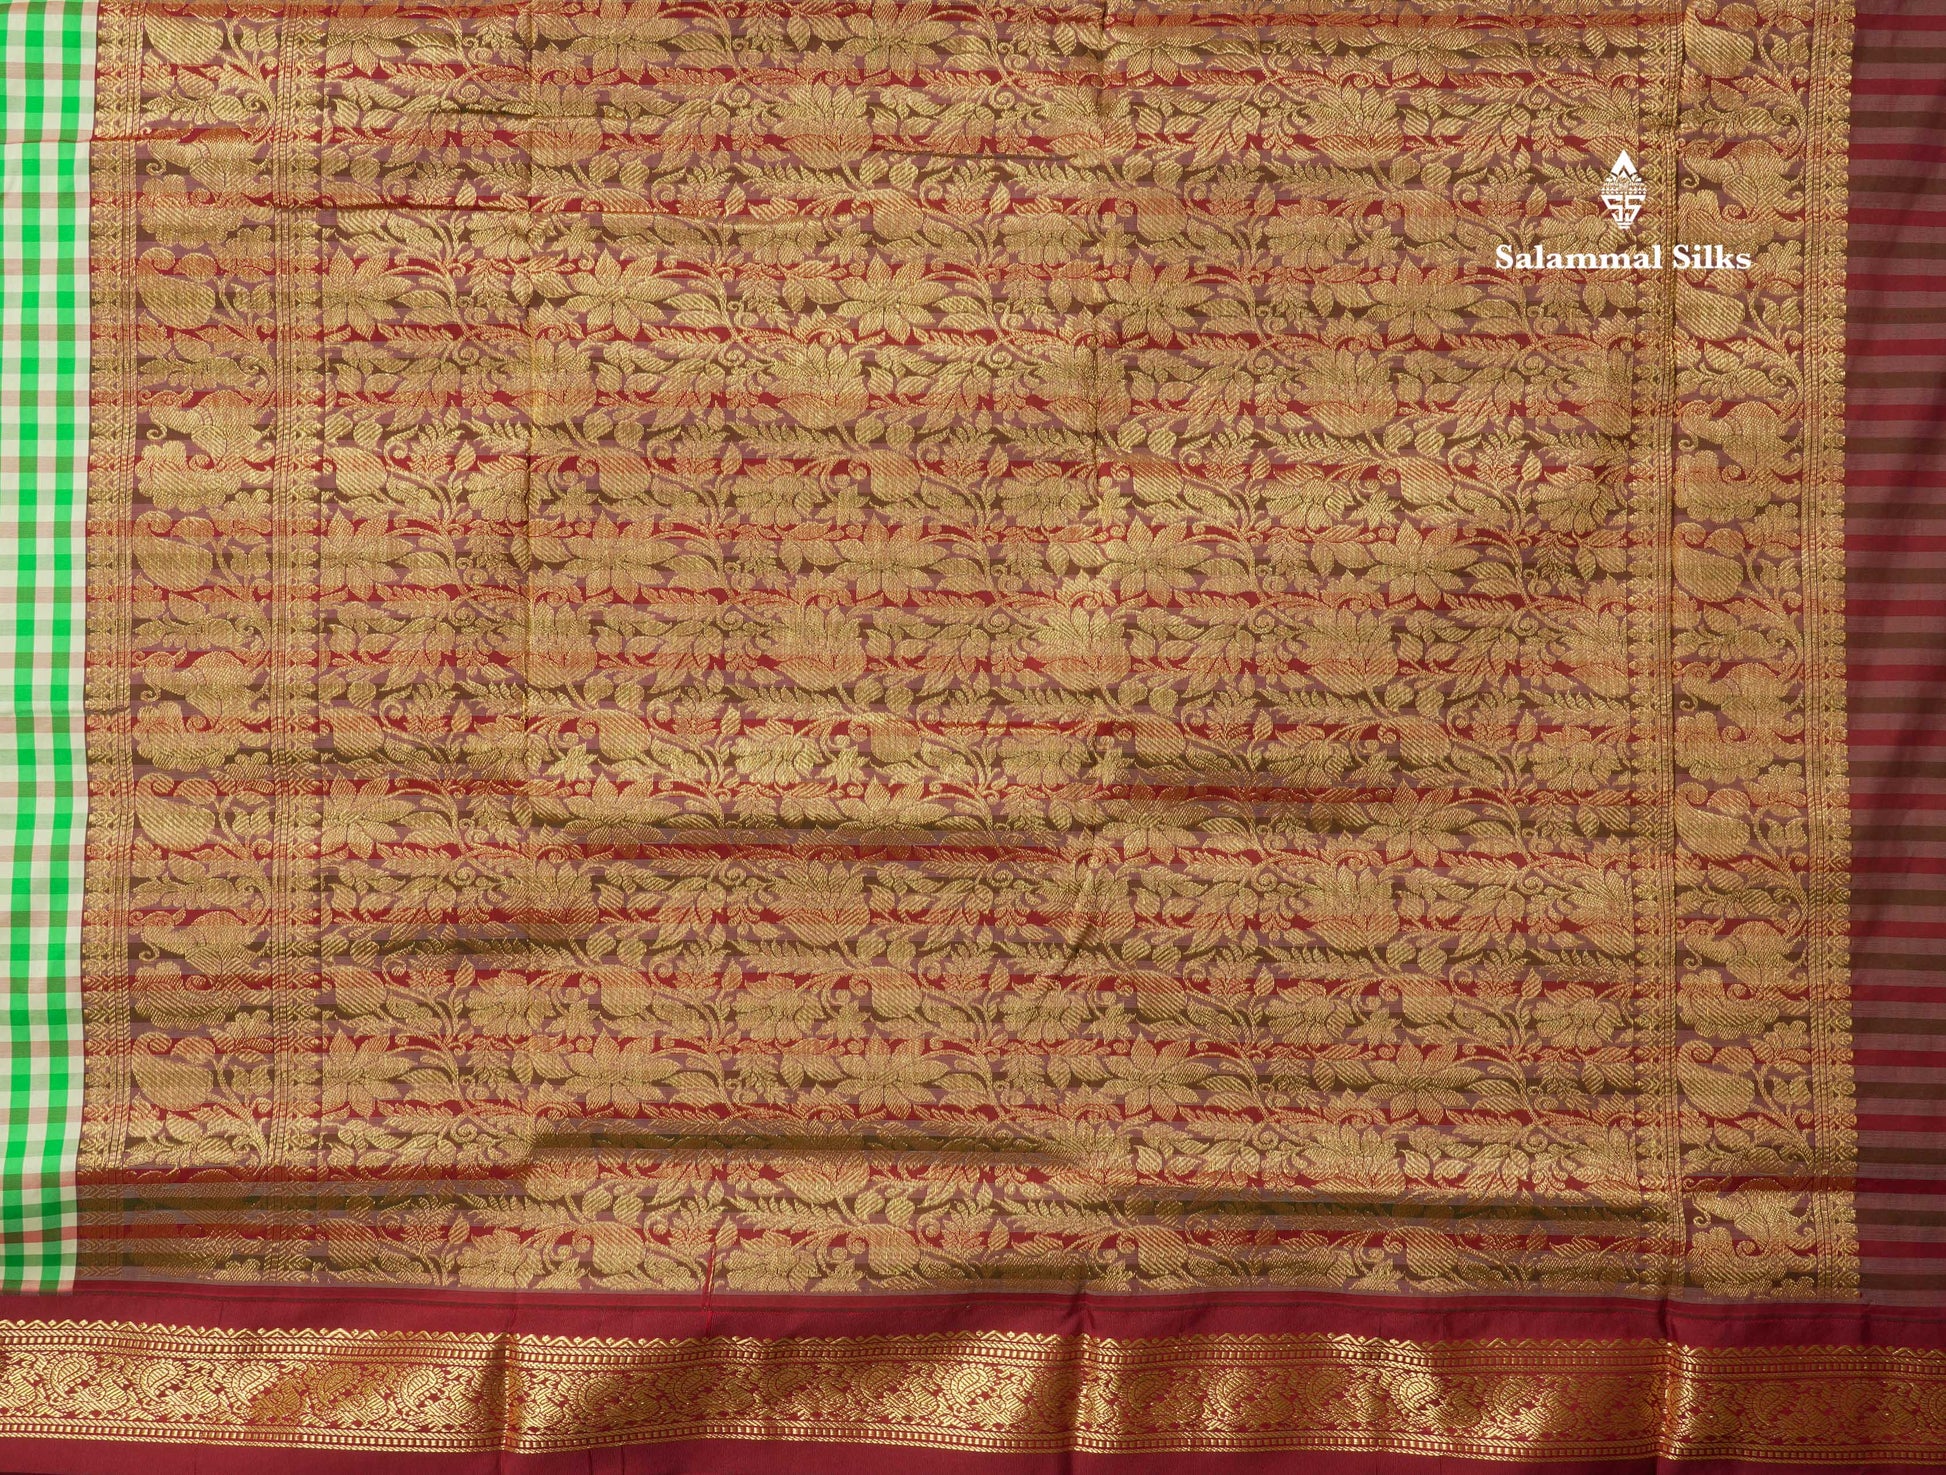 Salammal Silks